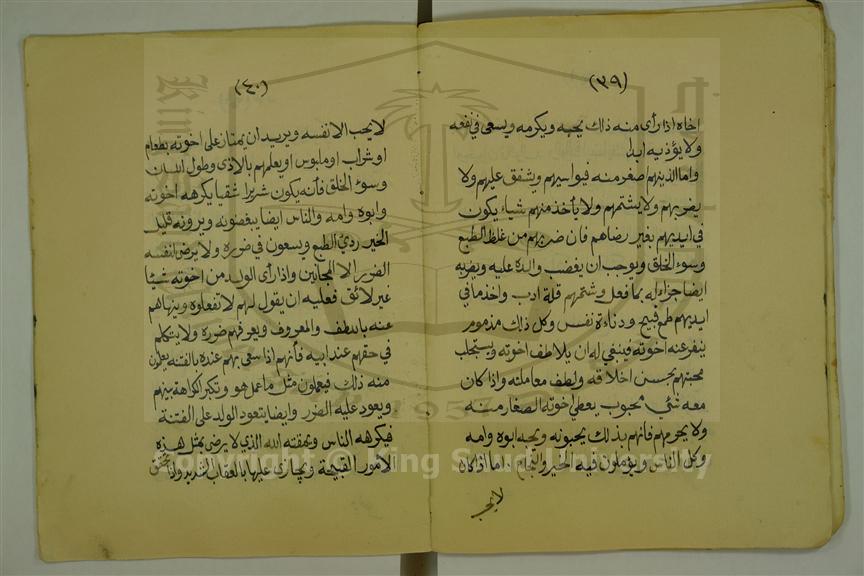 (٣٩)
اخاه اذا رأى منه ذلك يحبه ويكرمه ويسعى في نفعه
ولا يؤذيه ابدا
واما الذين هم اصغر منه فيواسيهم ويشفق عليهم ولا
يضربهم ولا يشتمهم ولا يأخذ منهم شياء يكون
في ايديهم بغير رضاهم فان ضربهم من غلظ الطبع
وسوء الخلق ويوجب ان يغضب والده عليه ويضربه
ايضا جزاء له بما فعل وشتمهم قلة ادب واخذ ما في
ايديهم طمع قبيح ودناءة نفس وكل ذلك مذموم
ينفر عنه اخوته فينبغي له ان يلاطف اخوته ويستجلب
محبتهم بحسن اخلاقه ولطف معاملته واذا كان
معه شئ محبوب يعطي اخوته الصغار منه
ولا يحرمهم فانهم بذلك يحبونه ويحبه ابوه وامه
وكل الناس ويؤملون فيه الخير والنجاح واما اذا كان
لا يحب
(٤٠)
لا يحب الا نفسه ويريد ان يمتاز على اخوته بطعام
او شراب او ملبوس او يعلمهم بالاذى وطول اللسان
وسوء الخلق فأنه يكون شريرا شقيا يكرهه اخوته
وابوه وامه والناس ايضا يبغضونه ويرونه قليل
الخير ردئ الطبع ويسعون في ضرره ولا يرض لنفسه
الضرر الا المجانين واذا رأى الولد من اخوته شيئا
غير لائق فعليه ان يقول لهم لا تفعلوه وينهاهم
عنه باللطف والمعروف ويعرفهم ضرره ولا يتكلم
في حقهم عند ابيه فأنهم اذا سعى بهم عنده بالفتنه يعلمون
منه ذلك فيعملون مثل ما عمل هو وتكبر الكراهة بينهم
ويعود عليه الضرر وايضا يتعود الولد على الفتنة
فيكرهه الناس ويمقته الله الذي لا يرضى بمثل هذه
الامور القبيحة ويجازى عليها بالعقاب الشديد واذا
Copyright © King Saud University
1957